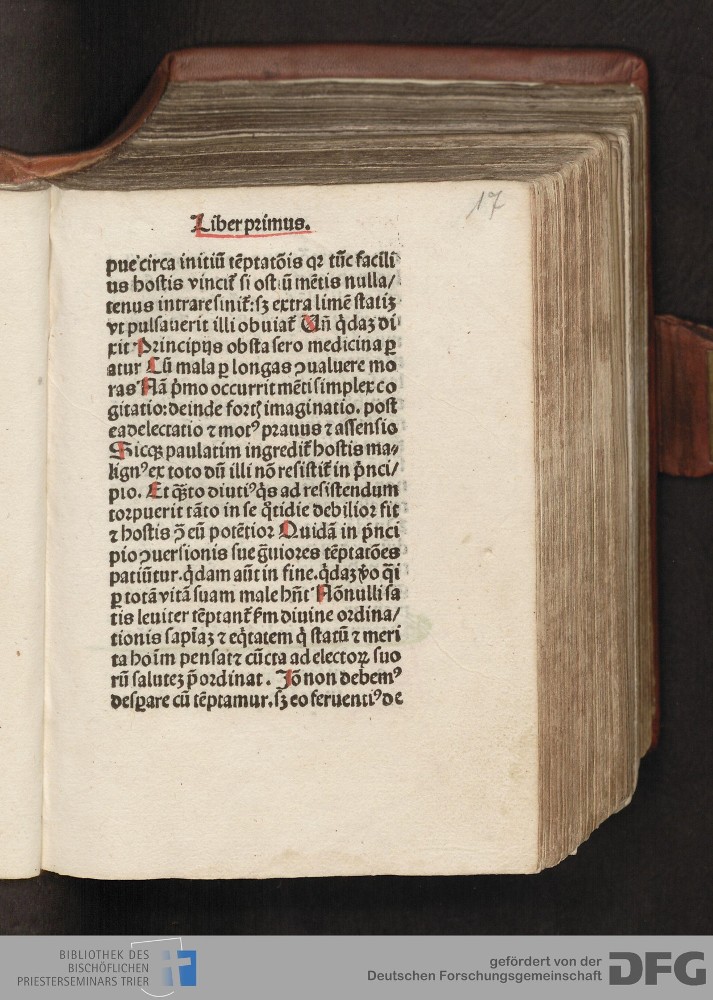 17
Liber primus.
pue circa initiū tēptatōis qꝛ tūc facili
us hostis vincit᷑ si ostiū mētis nulla/
tenus intrare sinit᷑: sꝫ extra limē statiꝫ
vt pulsauerit illi obuiat᷑ Vn̄ q̇daꝫ di
xit Principijs obsta sero medicina ꝑ
atur Cū mala ꝑ longas ꝯualuere mo
ras Nā p̄mo occurrit mēti simplex co
gitatio: deinde fortꝭ imaginatio. post
ea delectatio ⁊ motꝰ prauus ⁊ assensio
Sicqꝫ paulatim ingredit᷑ hostis ma⸗
lignꝰ ex toto dū illi nō resistit᷑ in p̄nci/
pio. Et q̄ꝫto diutiꝰ q̇s ad resistendum
torpuerit tāto in se q̇tidie debilior fit
⁊ hostis ꝯ̄ eū potētior Quidā in p̄nci
pio ꝯuersionis sue g̈uiores tēptatōes
patiūtur. q̇dam aūt in fine. q̇daꝫ v̊o q̄i
ꝑ totā vitā suam male hn̄t Nōnulli sa
tis leuiter tēptant᷑ ẜm diuine ordina/
tionis sapīaꝫ ⁊ eq̇tatem q̇ statū ⁊ meri
ta hoīm pensat ⁊ cūcta ad electoꝝ suo
rū saluteꝫ p̄ordinat. Jō non debemꝰ
desꝑare cū tēptamur. sꝫ eo feruentiꝰ de
BIBLIOTHEK DES
BISCHÖFLICHEN
PRIESTERSEMINARS TRIER
gefördert von der
Deutschen Forschungsgemeinschaft
DFG